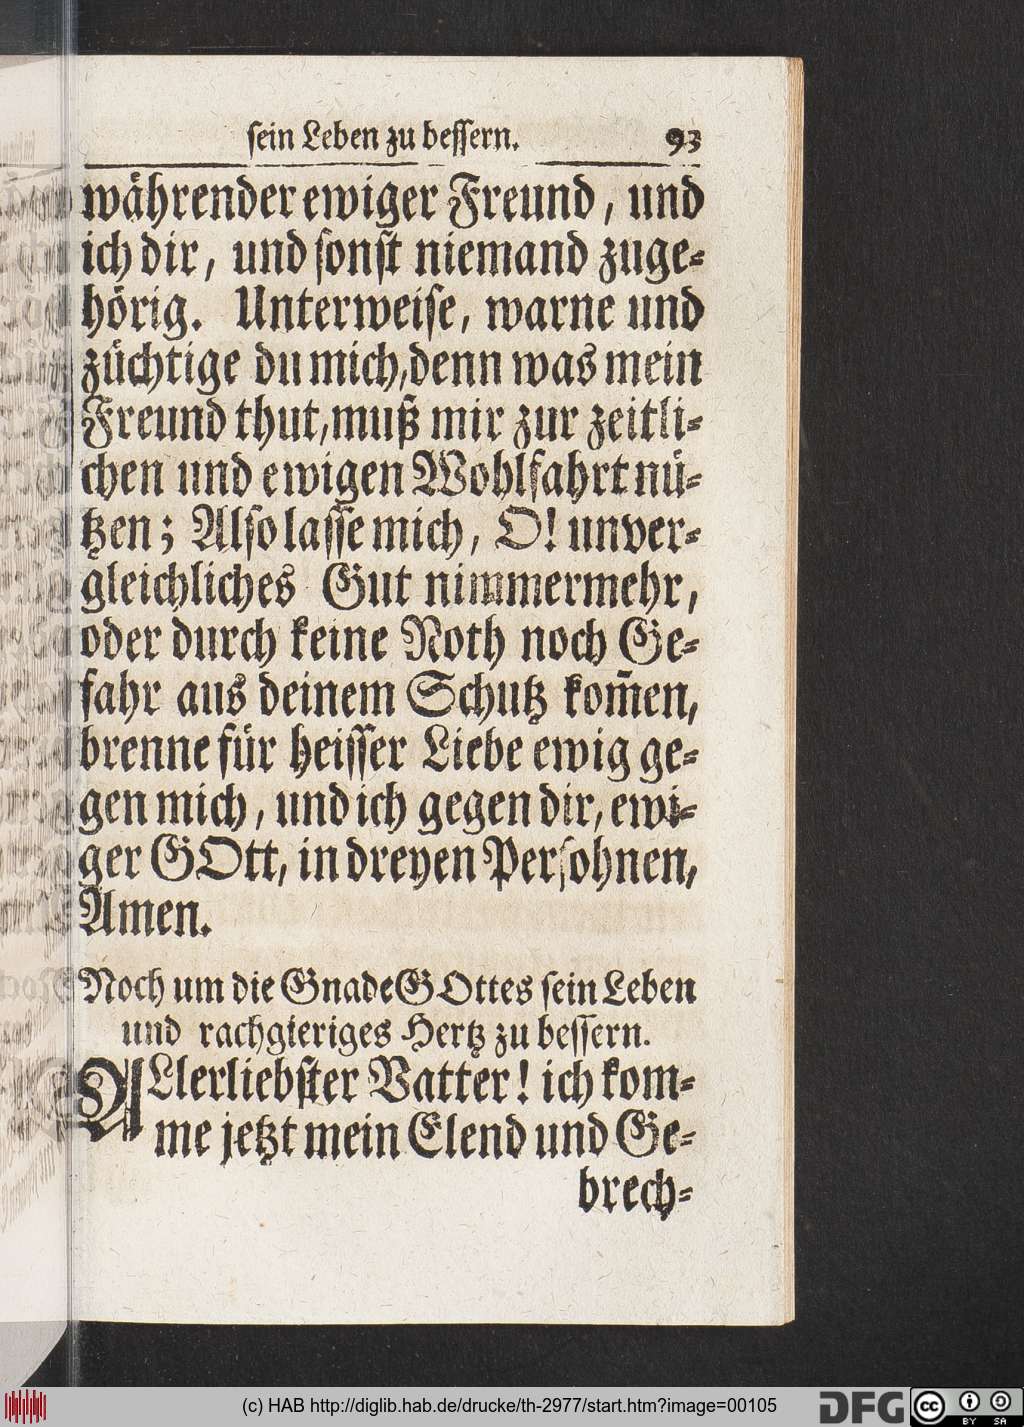 sein Leben zu bessern. 93
währender ewiger Freund, und
ich dir, und sonst niemand zuge-
hörig. Unterweise, warne und
züchtige du mich, denn was mein
Freund thut, muß mir zur zeitli-
chen und ewigen Wohlfahrt nü-
tzen; Also lasse mich, O! unver-
gleichliches Gut nimmermehr,
oder durch keine Noth noch Ge-
fahr aus deinem Schutz kom̃en,
brenne für heisser Liebe ewig ge-
gen mich, und ich gegen dir, ewi-
ger GOtt, in dreyen Persohnen,
Amen.
Noch um die Gnade GOttes sein Leben
und rachgieriges Hertz zu bessern.
ALlerliebster Vatter! ich kom-
me jetzt mein Elend und Ge-
brech-
(c) HAB http://diglib.hab.de/drucke/th-2977/start.htm?image=00105
DFG
cc
BY SA